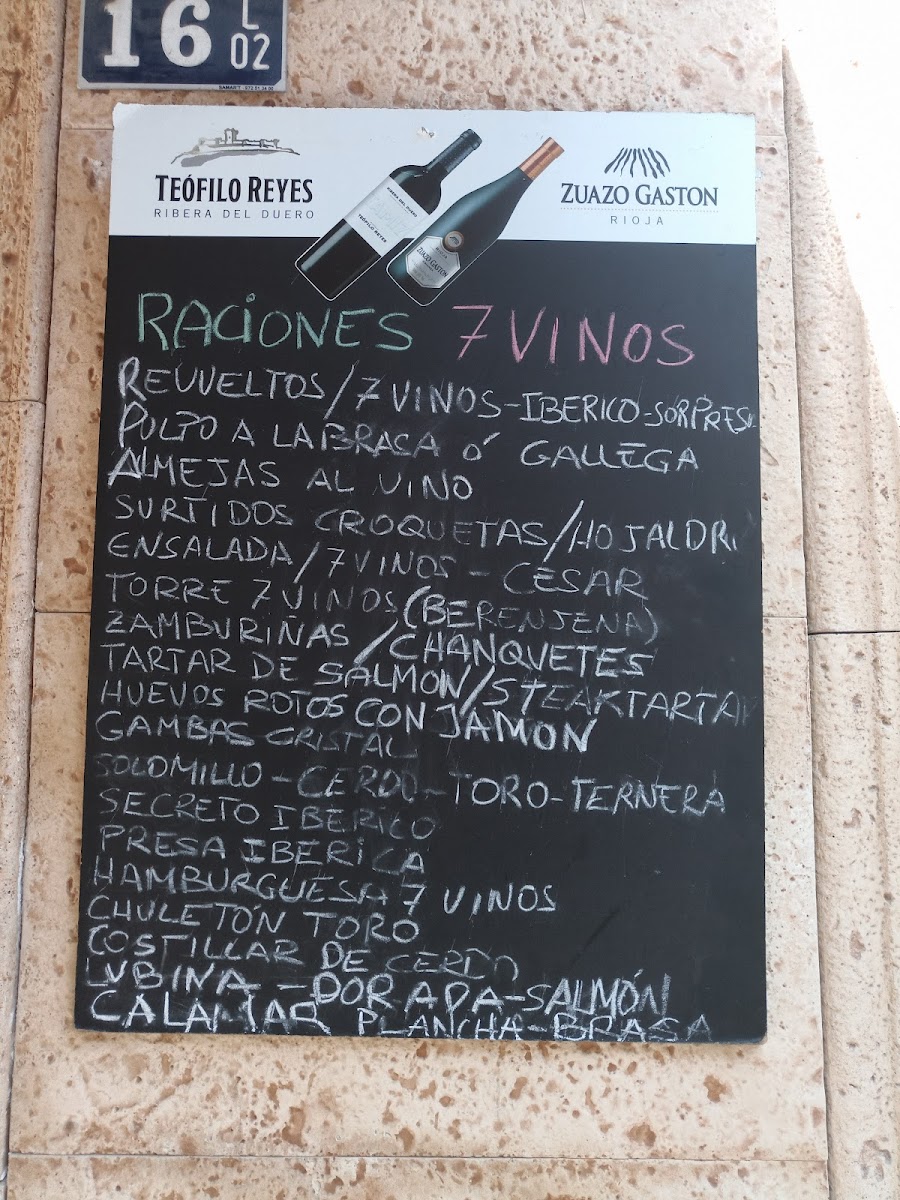 16 L 02
SAMAR'T - 972 51 24 00
TEÓFILO REYES
RIBERA DEL DUERO
ZUAZO GASTON
RIOJA
RIBERA DEL DUERO
TEÓFILO REYES
RIOJA
ZUAZO GASTON
RACIONES 7 VINOS
REVUELTOS/7 VINOS-IBERICO-SORPRES
PULPO A LA BRASA Ó GALLEGA
ALMEJAS AL VINO
SURTIDOS CROQUETAS/HOJALDR
ENSALADA/7 VINOS - CESAR
TORRE 7 VINOS (BERENJENA)
ZAMBURIÑAS/CHANQUETES
TARTAR DE SALMON/STEAKTARTA
HUEVOS ROTOS CON JAMON
GAMBAS CRISTAL
SOLOMILLO-CERDO-TORO-TERNERA
SECRETO IBERICO
PRESA IBERICA
HAMBURGUESA 7 VINOS
CHULETÓN TORO
COSTILLAR DE CERDO
LUBINA-DORADA-SALMÓN
CALAMAR PLANCHA-BRASA